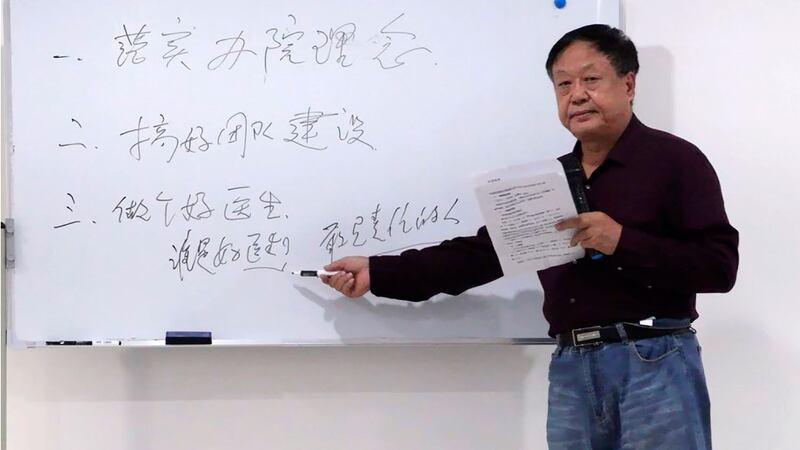 一、落实办院理念.
二、搞好团队建设
三、做个好医生.
谁是好医生?
责任的人